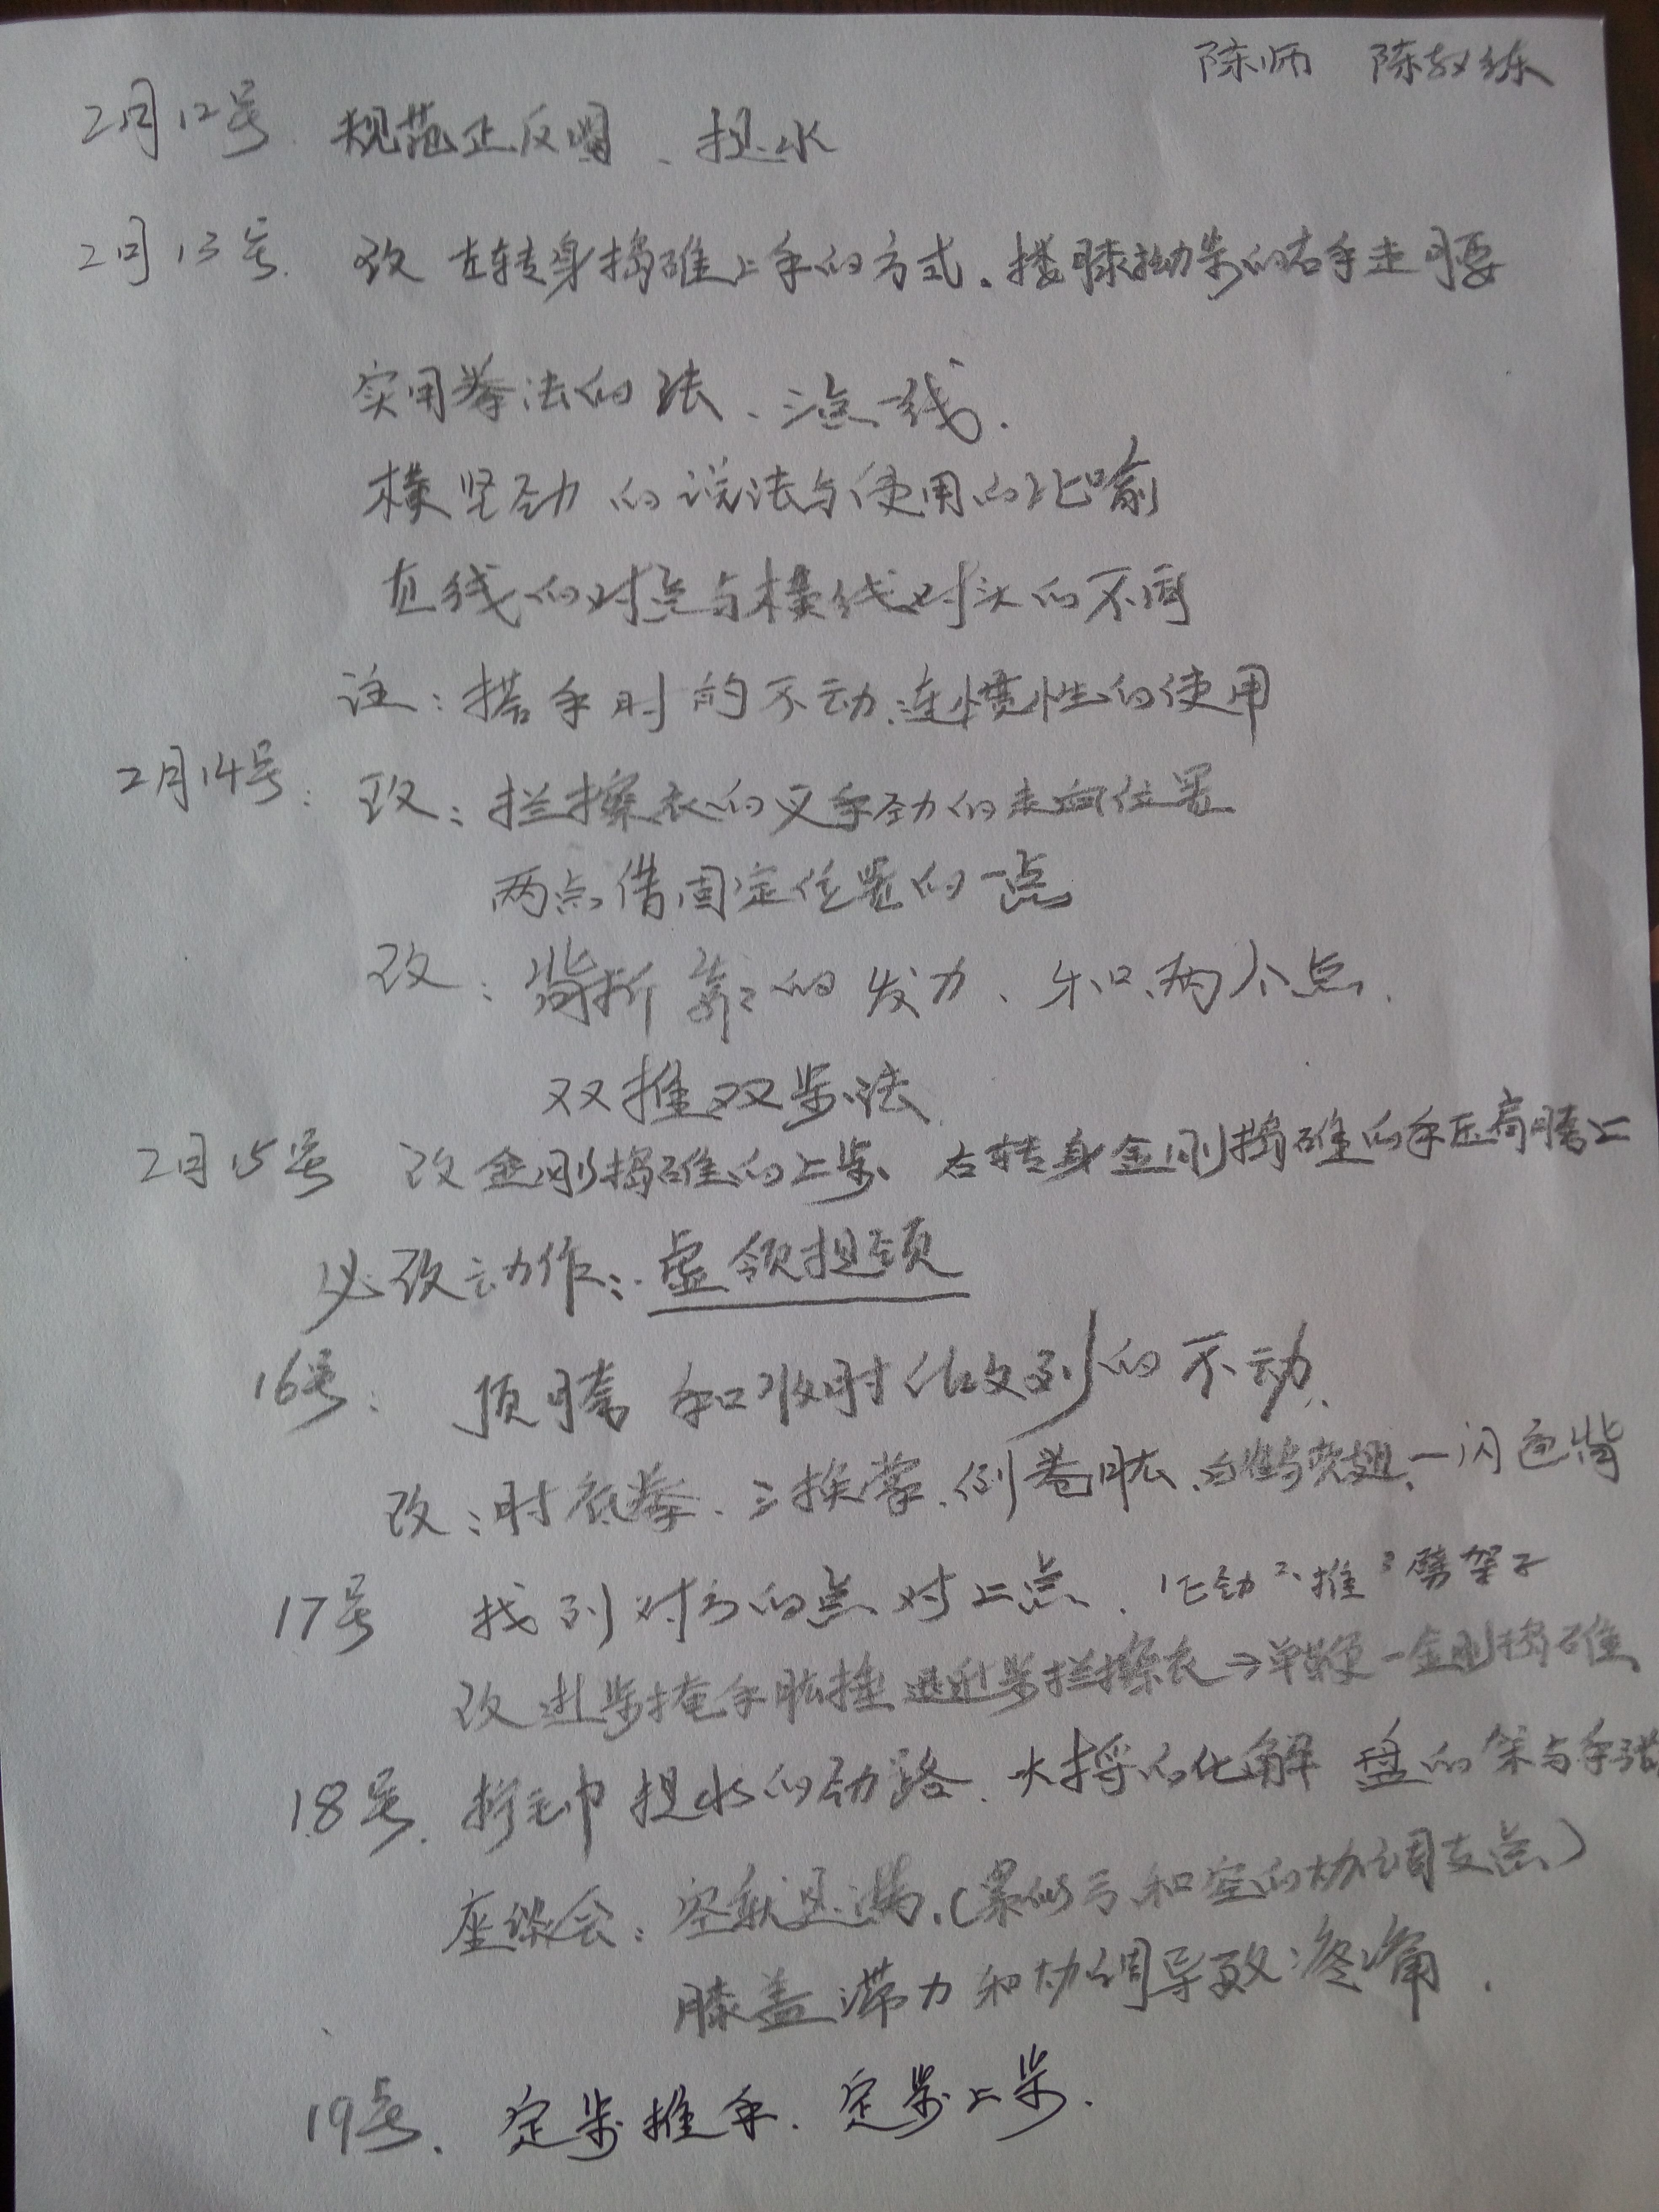 陈师 陈教练
2月12号. 规范正反圈、提水
2月13号. 改 左转身捣碓上手的方式。搂膝拗步的右手走腰
实用拳法的法、三点一线.
横竖劲的说法与使用的比喻
直线的对点与横线对头的不同
注:搭手时的不动、连惯性的使用
2月14号: 改:拦擦衣的叉手劲的走向位置
两点借固定位置的一点
改:背折靠的发力、和两个点.
双推双步法
2月15号 改金刚捣碓的上步、右转身金刚捣碓的手压高膝上
必改动作: 虚领提顶
16号: 顶胯和收时的不动.
改:肘底拳、三换掌、倒卷肱、白鹤亮翅、一闪通背
17号 找到对方的点对上点. 1 劲 2、推 3 劈架子
改 进步掩手肱捶 退步拦擦衣→单鞭-金刚捣碓
18号. 拧毛巾提水的劲路. 大捋的化解 盘的架与手
座谈会:空就是满.(和空的协调支点)
膝盖滞力和协调导致疼痛.
19号. 定步推手. 定步上步.